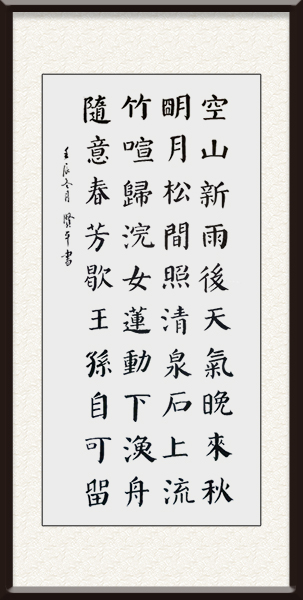 空山新雨後天氣晚來秋
明月松間照清泉石上流
竹喧歸浣女蓮動下漁舟
隨意春芳歇王孫自可留
壬辰冬月 賢平書